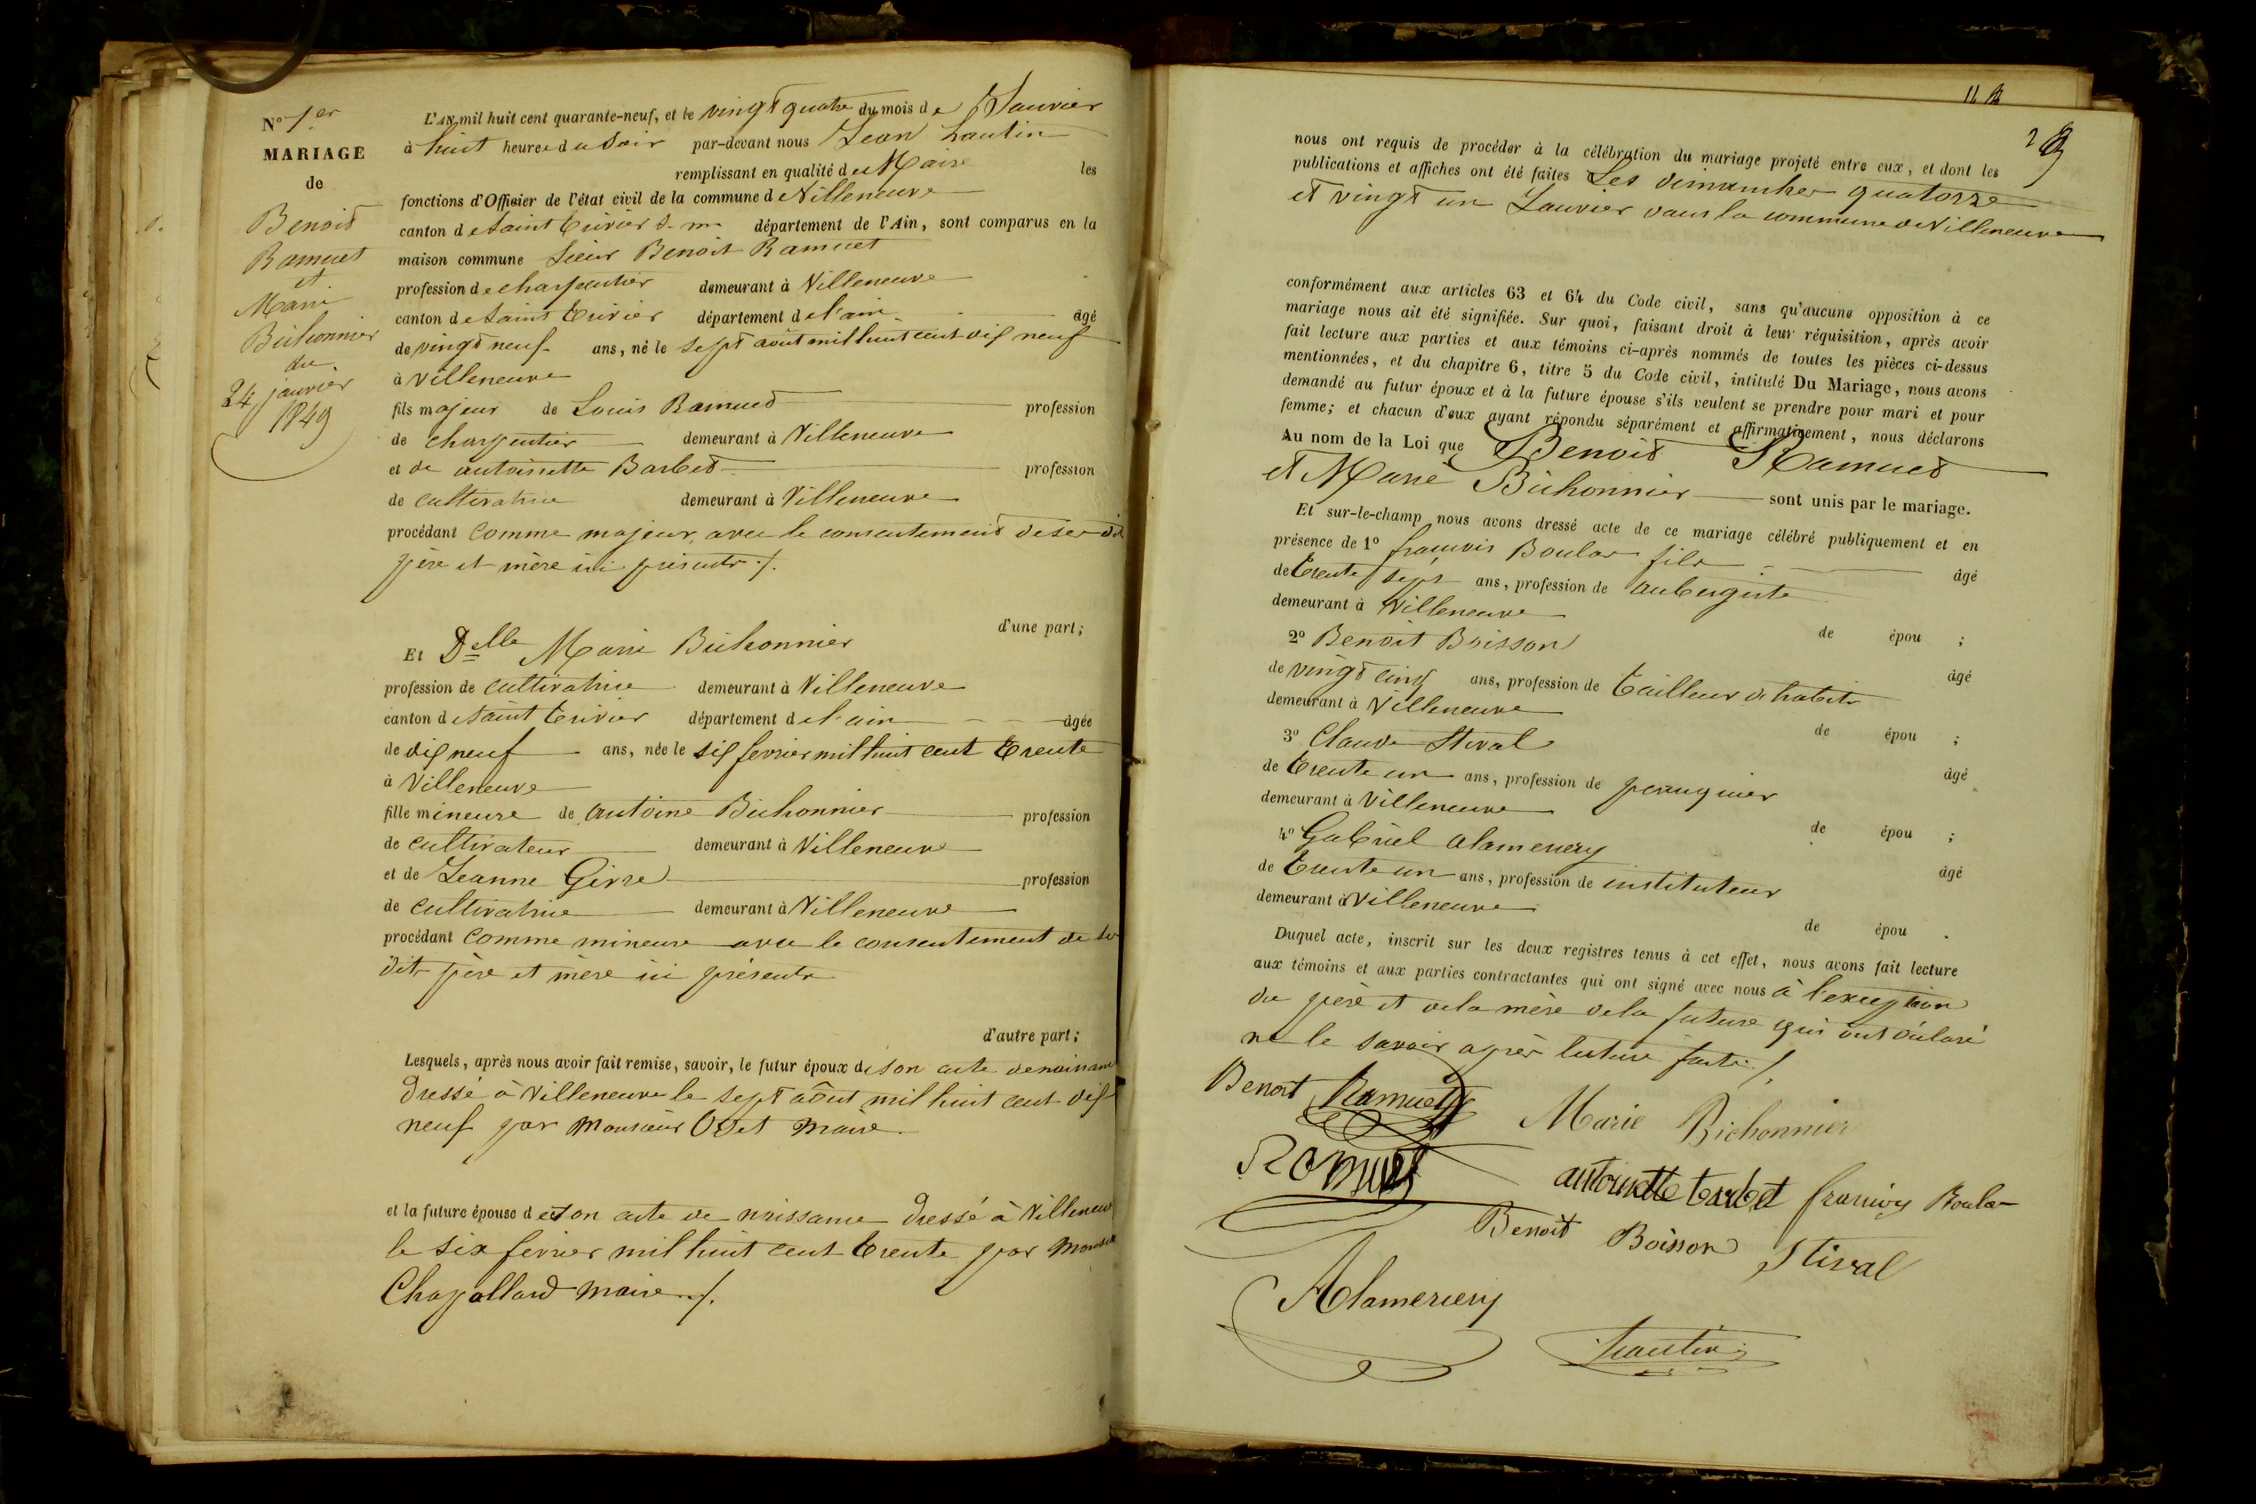 N° 1er
MARIAGE
de
Benoit
Ramuet
et
Marie
Bichonnier
du
24 janvier
1849
L'AN mil huit cent quarante-neuf, et le vingt quatre du mois de Janvier
à huit heures du soir par-devant nous Jean Lautin
remplissant en qualité de Maire les
fonctions d'Officier de l'état civil de la commune de Villeneuve
canton de Saint Trivier s. m. département de l'Ain, sont comparus en la
maison commune Sieur Benoit Ramuet
profession de charpentier demeurant à Villeneuve
canton de Saint Trivier département de l'ain âgé
de vingt neuf ans, né le sept août mil huit cent dix neuf
à Villeneuve
fils majeur de Louis Ramuet profession
de charpentier demeurant à Villeneuve
et de antoinette Barbet profession
de cultivatrice demeurant à Villeneuve
procédant comme majeur, avec le consentement de ses dit
père et mère ici présents ./.
d'une part;
Et Delle Marie Bichonnier
profession de cultivatrice demeurant à Villeneuve
canton de Saint Trivier département de l'ain âgée
de dix neuf ans, née le six fevrier mil huit cent trente
à Villeneuve
fille mineure de antoine Bichonnier profession
de cultivateur demeurant à Villeneuve
et de Jeanne Girre profession
de cultivatrice demeurant à Villeneuve
procédant comme mineure avec le consentement de ses
dits père et mère ici présents
d'autre part;
Lesquels, après nous avoir fait remise, savoir, le futur époux de son acte de naissance
dressé à Villeneuve le sept août mil huit cent dix
neuf par Monsieur Odet Maire
et la future épouse de son acte de naissance dressé à Villeneuve
le six fevrier mil huit cent trente par Monsieur
Chapolard maire ./.
2
nous ont requis de procéder à la célébration du mariage projeté entre eux, et dont les
publications et affiches ont été faites Les dimanches quatorze
et vingt un Janvier dans la commune de Villeneuve
conformément aux articles 63 et 64 du Code civil, sans qu'aucune opposition à ce
mariage nous ait été signifiée. Sur quoi, faisant droit à leur réquisition, après avoir
fait lecture aux parties et aux témoins ci-après nommés de toutes les pièces ci-dessus
mentionnées, et du chapitre 6, titre 5 du Code civil, intitulé Du Mariage, nous avons
demandé au futur époux et à la future épouse s'ils veulent se prendre pour mari et pour
femme; et chacun d'eux ayant répondu séparément et affirmativement, nous déclarons
Au nom de la Loi que Benoit Ramuet
et Marie Bichonnier sont unis par le mariage.
Et sur-le-champ nous avons dressé acte de ce mariage célébré publiquement et en
présence de 1° françois Boulas fils âgé
de trente sept ans, profession de aubergiste
demeurant à Villeneuve
de épou ;
2° Benoit Boisson âgé
de vingt cinq ans, profession de tailleur d'habits
demeurant à Villeneuve
de épou ;
3° Claude Stival âgé
de trente un ans, profession de perruquier
demeurant à Villeneuve
de épou ;
4° Gabriel alamercery âgé
de trente un ans, profession de instituteur
demeurant à Villeneuve
de épou .
Duquel acte, inscrit sur les deux registres tenus à cet effet, nous avons fait lecture
aux témoins et aux parties contractantes qui ont signé avec nous à l'exception
du père et de la mère de la future qui ont déclaré
ne le savoir après lecture faite ./.
Benoit Ramuet Marie Bichonnier
Romuet antoinette barbet françois Boulas
Benoit Boisson Stival
Alamercery
Lautin